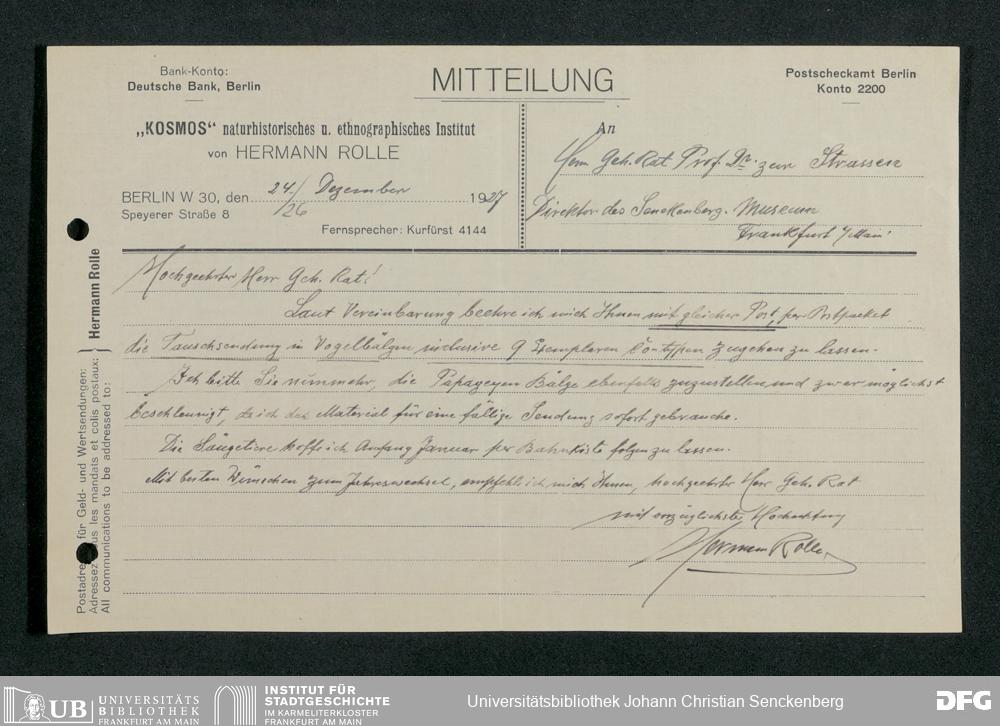 Bank-Konto:
Deutsche Bank, Berlin
MITTEILUNG
Postscheckamt Berlin
Konto 2200
„KOSMOS“ naturhistorisches u. ethnographisches Institut
von HERMANN ROLLE
BERLIN W 30, den 24./26 Dezember 1927
Speyerer Straße 8
Fernsprecher: Kurfürst 4144
An
Herrn Geh. Rat Prof. Dr. zur Strassen
Direktor des Senckenberg. Museum
Frankfurt /Main
Hochgeehrter Herr Geh. Rat!
Laut Vereinbarung beehre ich mich Ihnen mit gleicher Post, per Postpacket
die Tauschsendung in Vogelbälgen inclusive 9 Exemplaren Co-typen zugehen zu lassen.
Ich bitte Sie nunmehr, die Papageyen Bälge ebenfalls zuzustellen und zwar möglichst
beschleunigt, da ich das Material für eine fällige Sendung sofort gebrauche.
Die Säugetiere hoffe ich Anfang Januar per Bahnkiste folgen zu lassen.
Mit besten Wünschen zum Jahreswechsel, empfehle ich mich Ihnen, hochgeehrter Herr Geh. Rat
mit vorzüglichster Hochachtung
Hermann Rolle
Postadresse für Geld- und Wertsendungen:
Adressez tous les mandats et colis postaux:
All communications to be addressed to:
Hermann Rolle
UB UNIVERSITÄTS
BIBLIOTHEK
FRANKFURT AM MAIN
INSTITUT FÜR
STADTGESCHICHTE
IM KARMELITERKLOSTER
FRANKFURT AM MAIN
Universitätsbibliothek Johann Christian Senckenberg
DFG